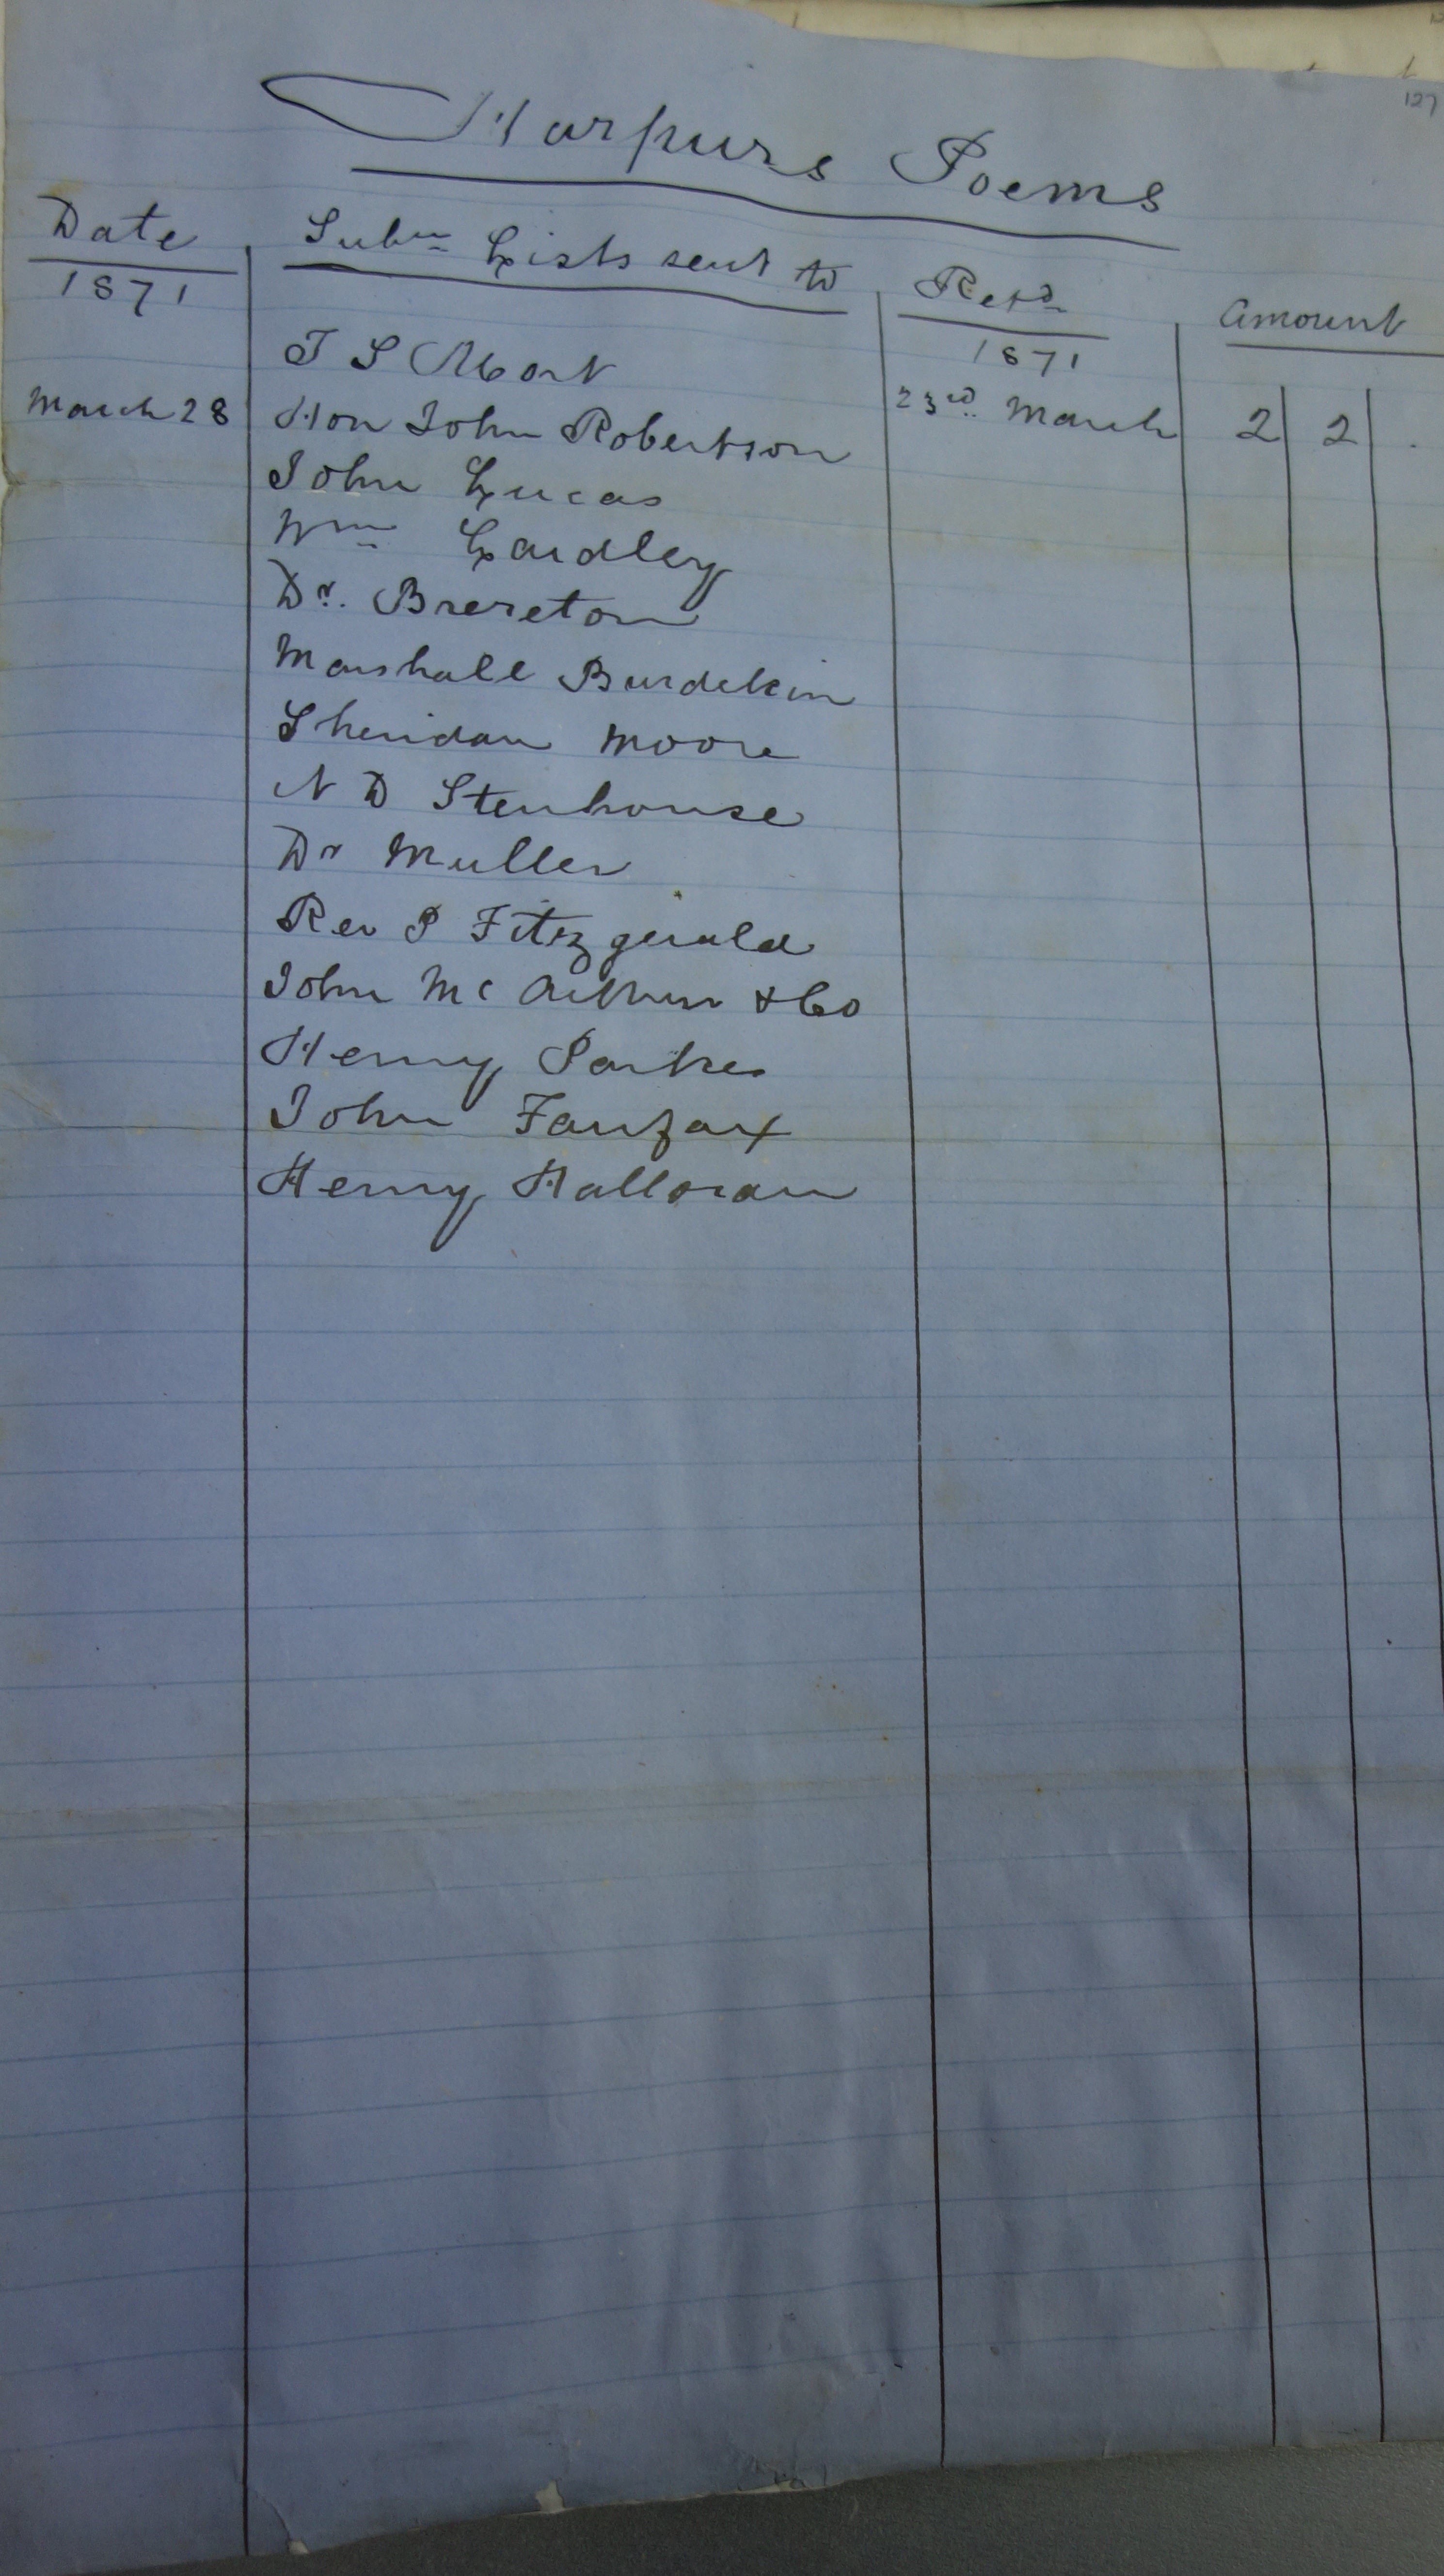 127
Harpurs Poems
Date Subn Lists sent to Retd Amount
1871 1871
T S Mort
March 28 Hon John Robertson 23rd March 2 2 .
John Lucas
Wm Laidley
Dr. Brereton
Marshall Burdekin
Sheridan Moore
N D Stenhouse
Dr Muller
Rev P Fitzgerald
John Mc Arthur & Co
Henry Parkes
John Fairfax
Henry Halloran